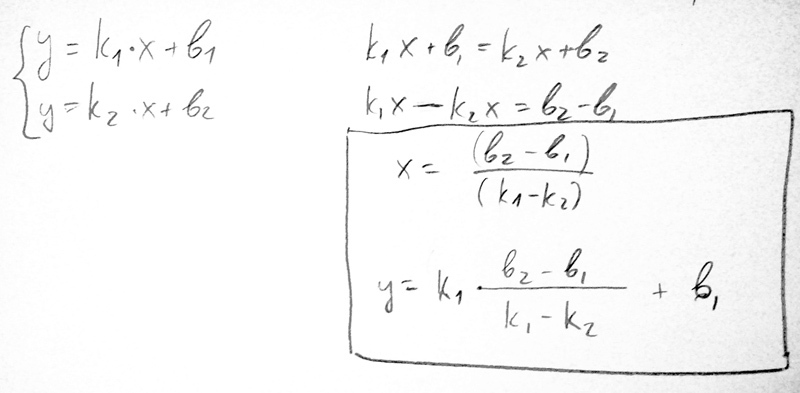 y = k₁·x + b₁
y = k₂·x + b₂
k₁x + b₁ = k₂x + b₂
k₁x − k₂x = b₂ − b₁
x = (b₂ − b₁) / (k₁ − k₂)
y = k₁ · (b₂ − b₁) / (k₁ − k₂) + b₁